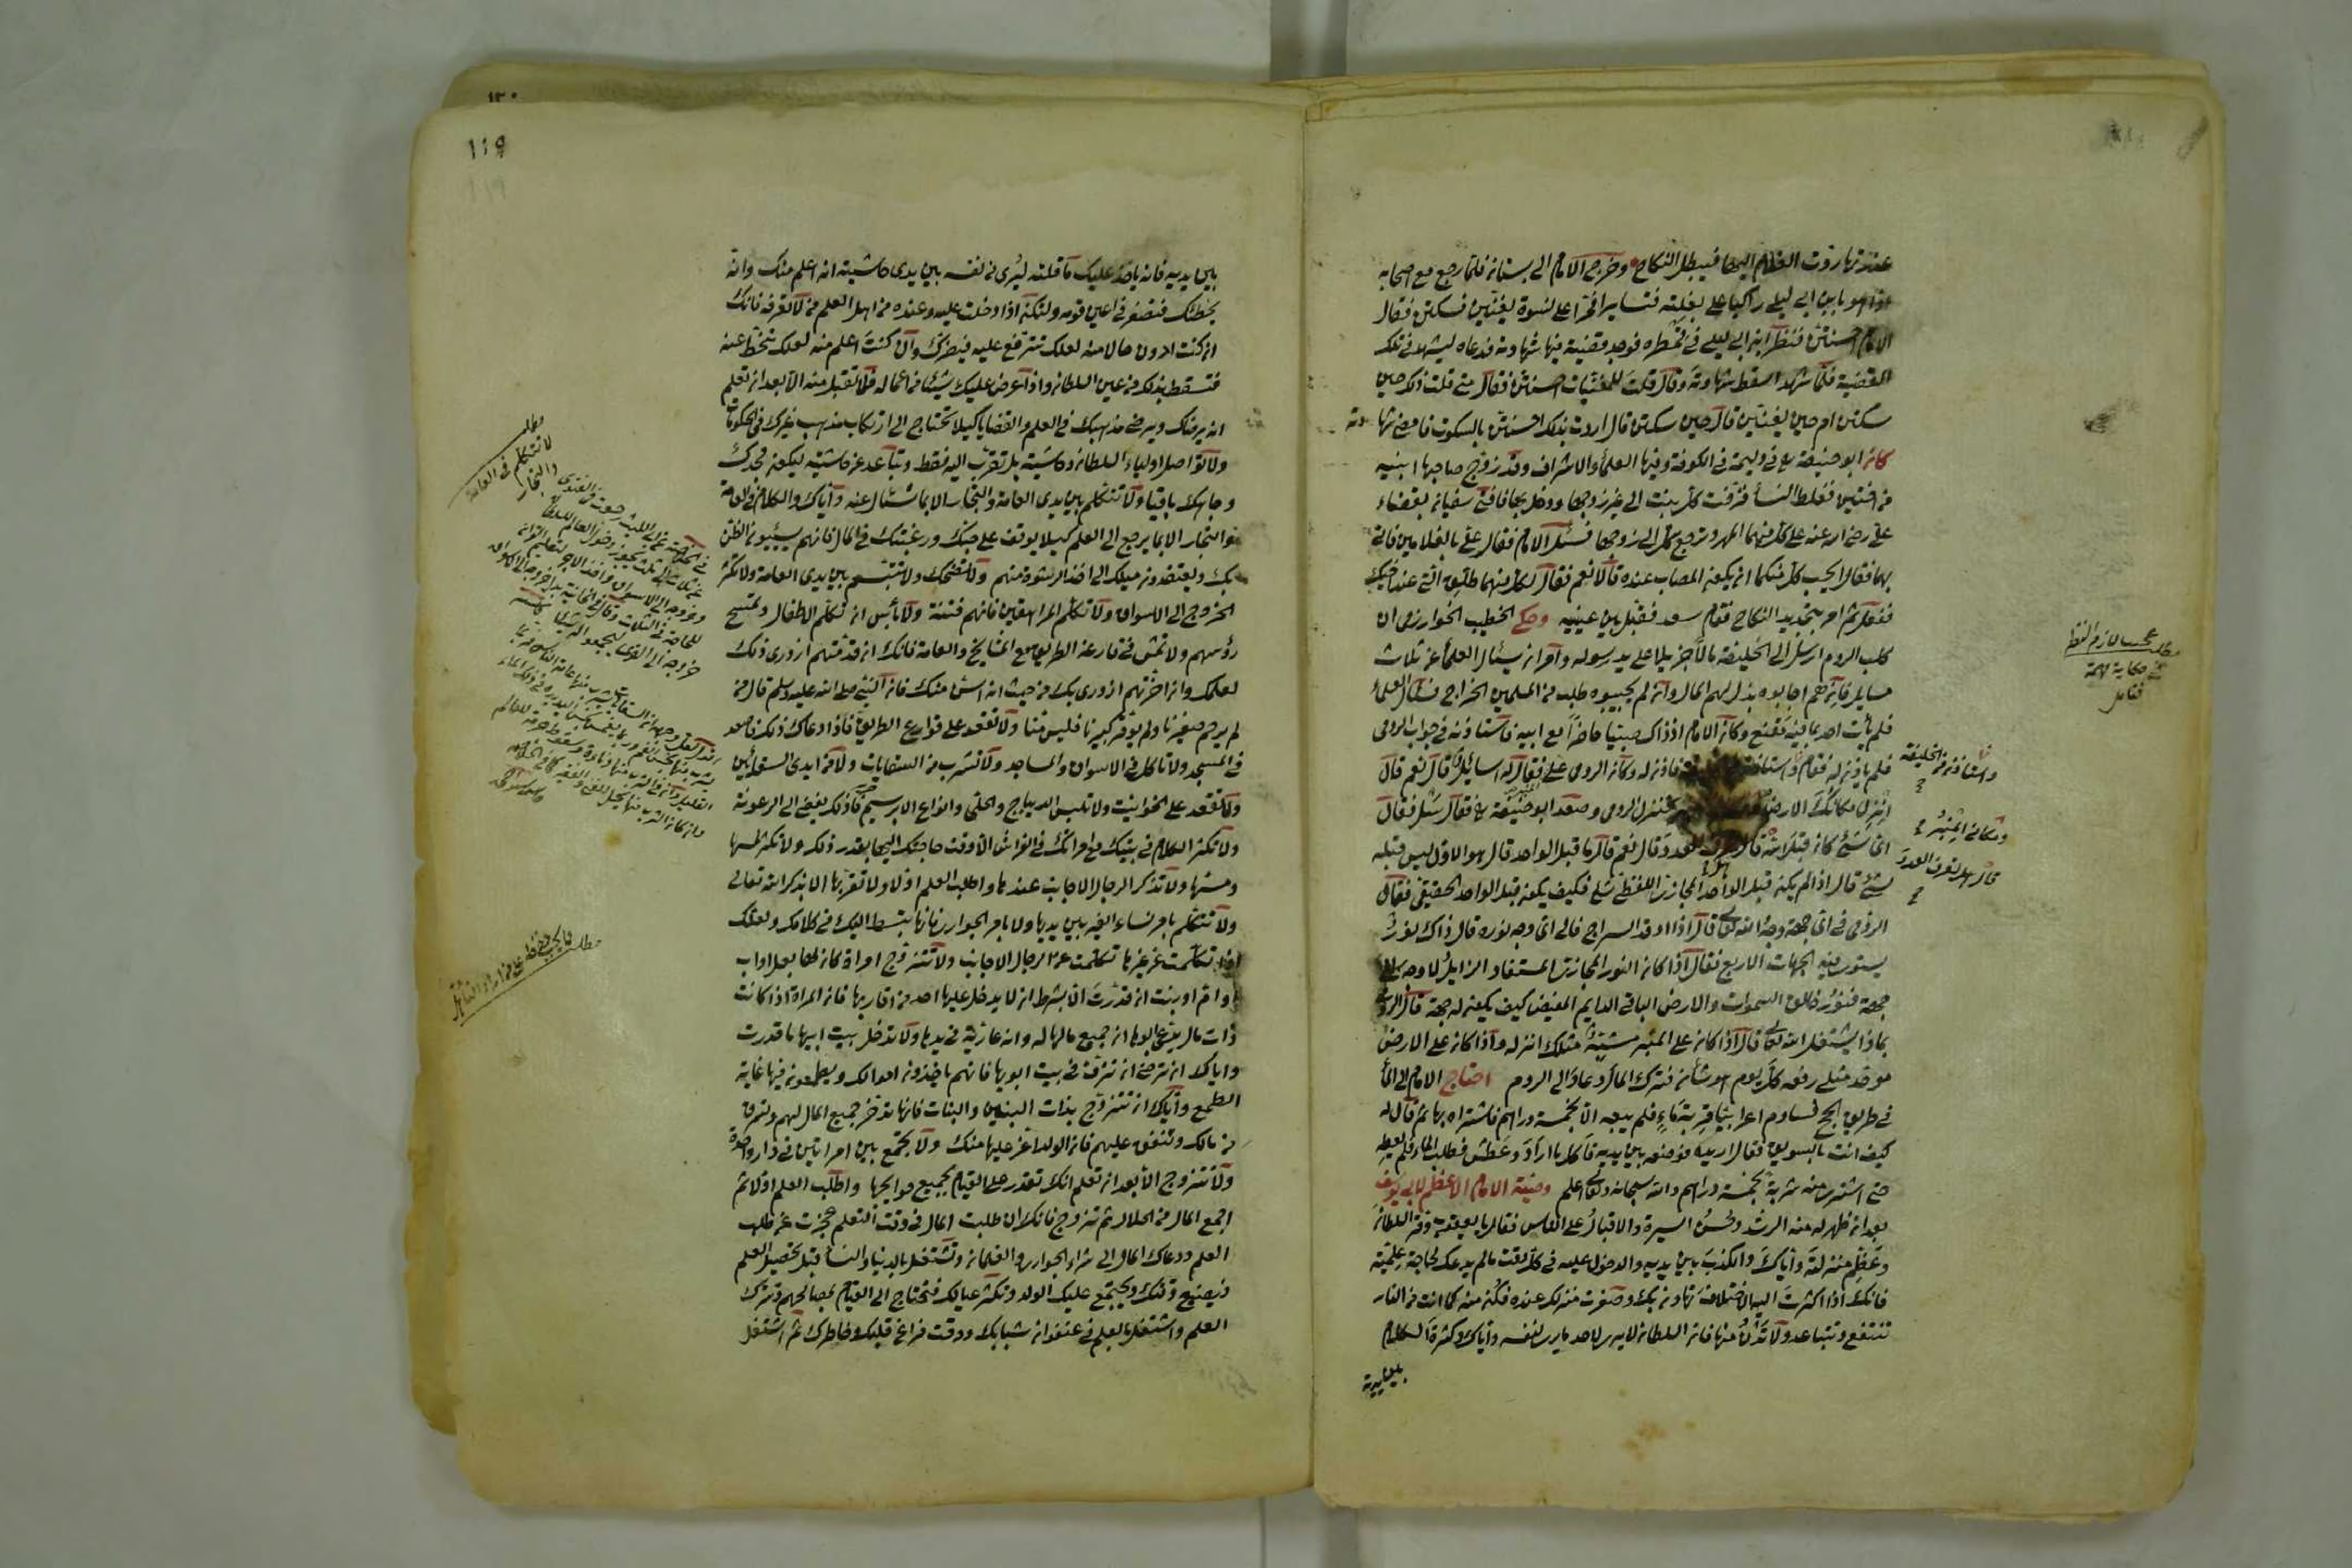 عندنا روت الغلام اليها فيبطل النكاح وخرج الامام الى بستانه فلما رجع مع اصحابه
اذا هو بابن ابي ليلى راكبا على بغلته فتسايرا فمرا على نسوة يغنين فسكتن فقال
الامام احسنتن فنظر ابن ابي ليلى في قمطره فوجد قضية فيها شهادته فدعاه ليشهد في تلك
القضية فلما شهد اسقط شهادته وقال قلت للمغنيات احسنتن فقال متى قلت ذلك حين
سكتن ام حين يغنين قال حين سكتن قال اردت بذلك احسنتن بالسكوت فامضى شهادته
كان ابو حنيفة رع في وليمة في الكوفة وفيها العلماء والاشراف وقد زوج صاحبها ابنيه
من اختين فغلط النساء فزفت كل بنت الى غير زوجها ودخل بها فافتى سفيان بقضاء
علي رضي الله عنه على كل منهما المهر وترجع كل الى زوجها فسئل الامام فقال علي بالغلامين فاتى
بهما فقال ايحب كل منكما ان يكون المصاب عنده قالا نعم فقال لكل منهما طلق التي عند اخيك
ففعل ثم امر بتجديد النكاح فقام سعد فقبل بين عينيه وحكى الخطيب الخوارزمي ان
كلب الروم ارسل الى الخليفة مالا جزيلا على يد رسوله وامر ان يسئال العلماء عن ثلاث
مسايل فان هم اجابوه بذل لهم المال وان لم يجيبوه طلب من المسلمين الخراج فسأل العلماء
فلم يأت احد بما فيه مقنع وكان الامام اذ ذاك صبيا حاضرا مع ابيه فاستاذنه في جواب الرومي
فلم ياذن له فقام واستاذن فاذن له وكان الرومي على فقال له اسايل انت قال نعم قال
انزل مكانك الارض فنزل الرومي وصعد ابو حنيفة رع فقال سل فقال
اي شيء كان قبل الله قال هل تعرف العدد قال نعم قال ما قبل الواحد قال هو الاول ليس قبله
شئ قال اذا لم يكن قبل الواحد المجازي اللفظي شئ فكيف يكون قبل الواحد الحقيقي فقال
الرومي في اي جهة وجه الله تعالى قال اذا اوقد السراج فالى اي وجه نوره قال ذاك نور
يستوي فيه الجهات الاربع فقال اذا كان النور المجازي المستفاد الزايل لا وجه له الى
جهة فنور خالق السموات والارض الباقي الدايم المفيض كيف يكون له جهة قال الرومي
بماذا يشتغل الله تعالى قال اذا كان على المنبر مشبه مثلك انزله واذا كان على الارض
موحد مثلي رفعه كل يوم هو في شأن فترك المال وعاد الى الروم احتاج الامام الى الماء
في طريق الحج فساوم اعرابيا قربة ماء فلم يبعه الا بخمسة دراهم فاشتراه بها ثم قال له
كيف انت بالسويق فقال اريده فوضعه بين يديه فاكل ما اراد وعطش فطلب الماء فلم يعطه
حتى اشترى منه شربة بخمسة دراهم والله سبحانه وتعالى اعلم وصية الامام الاعظم لابي يوسف
بعد ان ظهر له منه الرشد وحسن السيرة والاقبال على الناس فقال يا يعقوب وقر السلطان
وعظم منزلته واياك والكذب بين يديه والدخول عليه في كل وقت مالم يدعك لحاجة علمية
فانك اذا اكثرت اليه الاختلاف تهاون بك وصغرت منزلتك عنده فكن منه كما انت من النار
تنتفع وتتباعد ولا تدن منها فان السلطان لا يرى لاحد ما يرى لنفسه واياك وكثرة الكلام
بين يديه
مطلب
حكاية مهمة
فتامل
واستاذن من الخليفة
ومكاني المنبر
قال هل تعرف العدد
١١٩
بين يديه فانه ياخذ عليك ما قلته ليرى من نفسه بين يدي حاشيته انه اعلم منك وانه
يخطئك فتصغر في اعين قومه ولتكن اذا دخلت عليه وعنده من اهل العلم من لا تعرفه فانك
ان كنت ادون حالا منه لعلك تترفع عليه فيضرك وان كنت اعلم منه لعلك تنحط عنه
فتسقط بذلك من عين السلطان واذا عرض عليك شيئا من اعماله فلا تقبل منه الا بعد ان تعلم
انه يرضاك ويرضى مذهبك في العلم والقضايا كيلا تحتاج الى ارتكاب مذهب غيرك في الحكومات
ولا تواصل اولياء السلطان وحاشيته بل تقرب اليه فقط وتباعد عن حاشيته ليكون مجدك
وجاهك باقيا ولا تتكلم بين يدي العامة والتجار الا بما تسئال عنه واياك والكلام في العامة
والتجار الا بما يرجع الى العلم كيلا يوقف على حبك ورغبتك في المال فانهم يسيئون الظن
بك ويعتقدون ميلك الى اخذ الرشوة منهم ولا تضحك ولا تتبسم بين يدي العامة ولا تكثر
الخروج الى الاسواق ولا تكلم المراهقين فانهم فتنة ولا بأس ان تكلم الاطفال وتمسح
رؤسهم ولا تمش في قارعة الطريق مع المشايخ والعامة فانك ان قدمتهم ازدري ذلك
لعلمك وان اخرتهم ازدري بك من حيث انه اسن منك فان النبي صلى الله عليه وسلم قال من
لم يرحم صغيرنا ولم يوقر كبيرنا فليس منا ولا تقعد على قوارع الطريق فاذا دعاك ذلك فاقعد
في المسجد ولا تاكل في الاسواق والمساجد ولا تشرب من السقايات ولا من ايدي السقائين
ولا تقعد على الحوانيت ولا تلبس الديباج والحلى وانواع الابريسم فان ذلك يفضي الى الرعونة
ولا تكثر الكلام في بيتك مع امرأتك في الفراش الا وقت حاجتك اليها بقدر ذلك ولا تكثر لمسها
ومسها ولا تذكر الرجال الاجانب عندها واطلب العلم اولا ولا تقربها الا بذكر الله تعالى
ولا تتكلم بامر نساء الغير بين يديها ولا بامر الجواري فانها تبسط اليك في كلامك ولعلك
اذا تكلمت عن غيرها تكلمت عن الرجال الاجانب ولا تتزوج امراة كان لها بعل او اب
او ام او بنت ان قدرت الا بشرط ان لا يدخل عليها احد من اقاربها فان المراة اذا كانت
ذات مال يدعي ابوها ان جميع مالها له وانه عارية في يدها ولا تدخل بيت ابيها ما قدرت
واياك ان ترضى ان تزف في بيت ابويها فانهم ياخذون اموالك ويطمعون فيها غاية
الطمع واياك ان تتزوج بذات البنين والبنات فانها تدخر جميع المال لهم وتسرق
من مالك وتنفق عليهم فان الولد اعز عليها منك ولا تجمع بين امراتين في دار واحدة
ولا تتزوج الا بعد ان تعلم انك تقدر على القيام بجميع حوايجها واطلب العلم اولا ثم
اجمع المال من الحلال ثم تزوج فانك ان طلبت المال في وقت التعلم عجزت عن طلب
العلم ودعاك المال الى شراء الجواري والغلمان وتشتغل بالدنيا والنساء قبل تحصيل العلم
فيضيع وقتك ويجتمع عليك الولد وتكثر عيالك فتحتاج الى القيام بمصالحهم وتترك
العلم واشتغل بالعلم في عنفوان شبابك ووقت فراغ قلبك وخاطرك ثم اشتغل
مطلب
لا تتكلم في العامة
والتجار